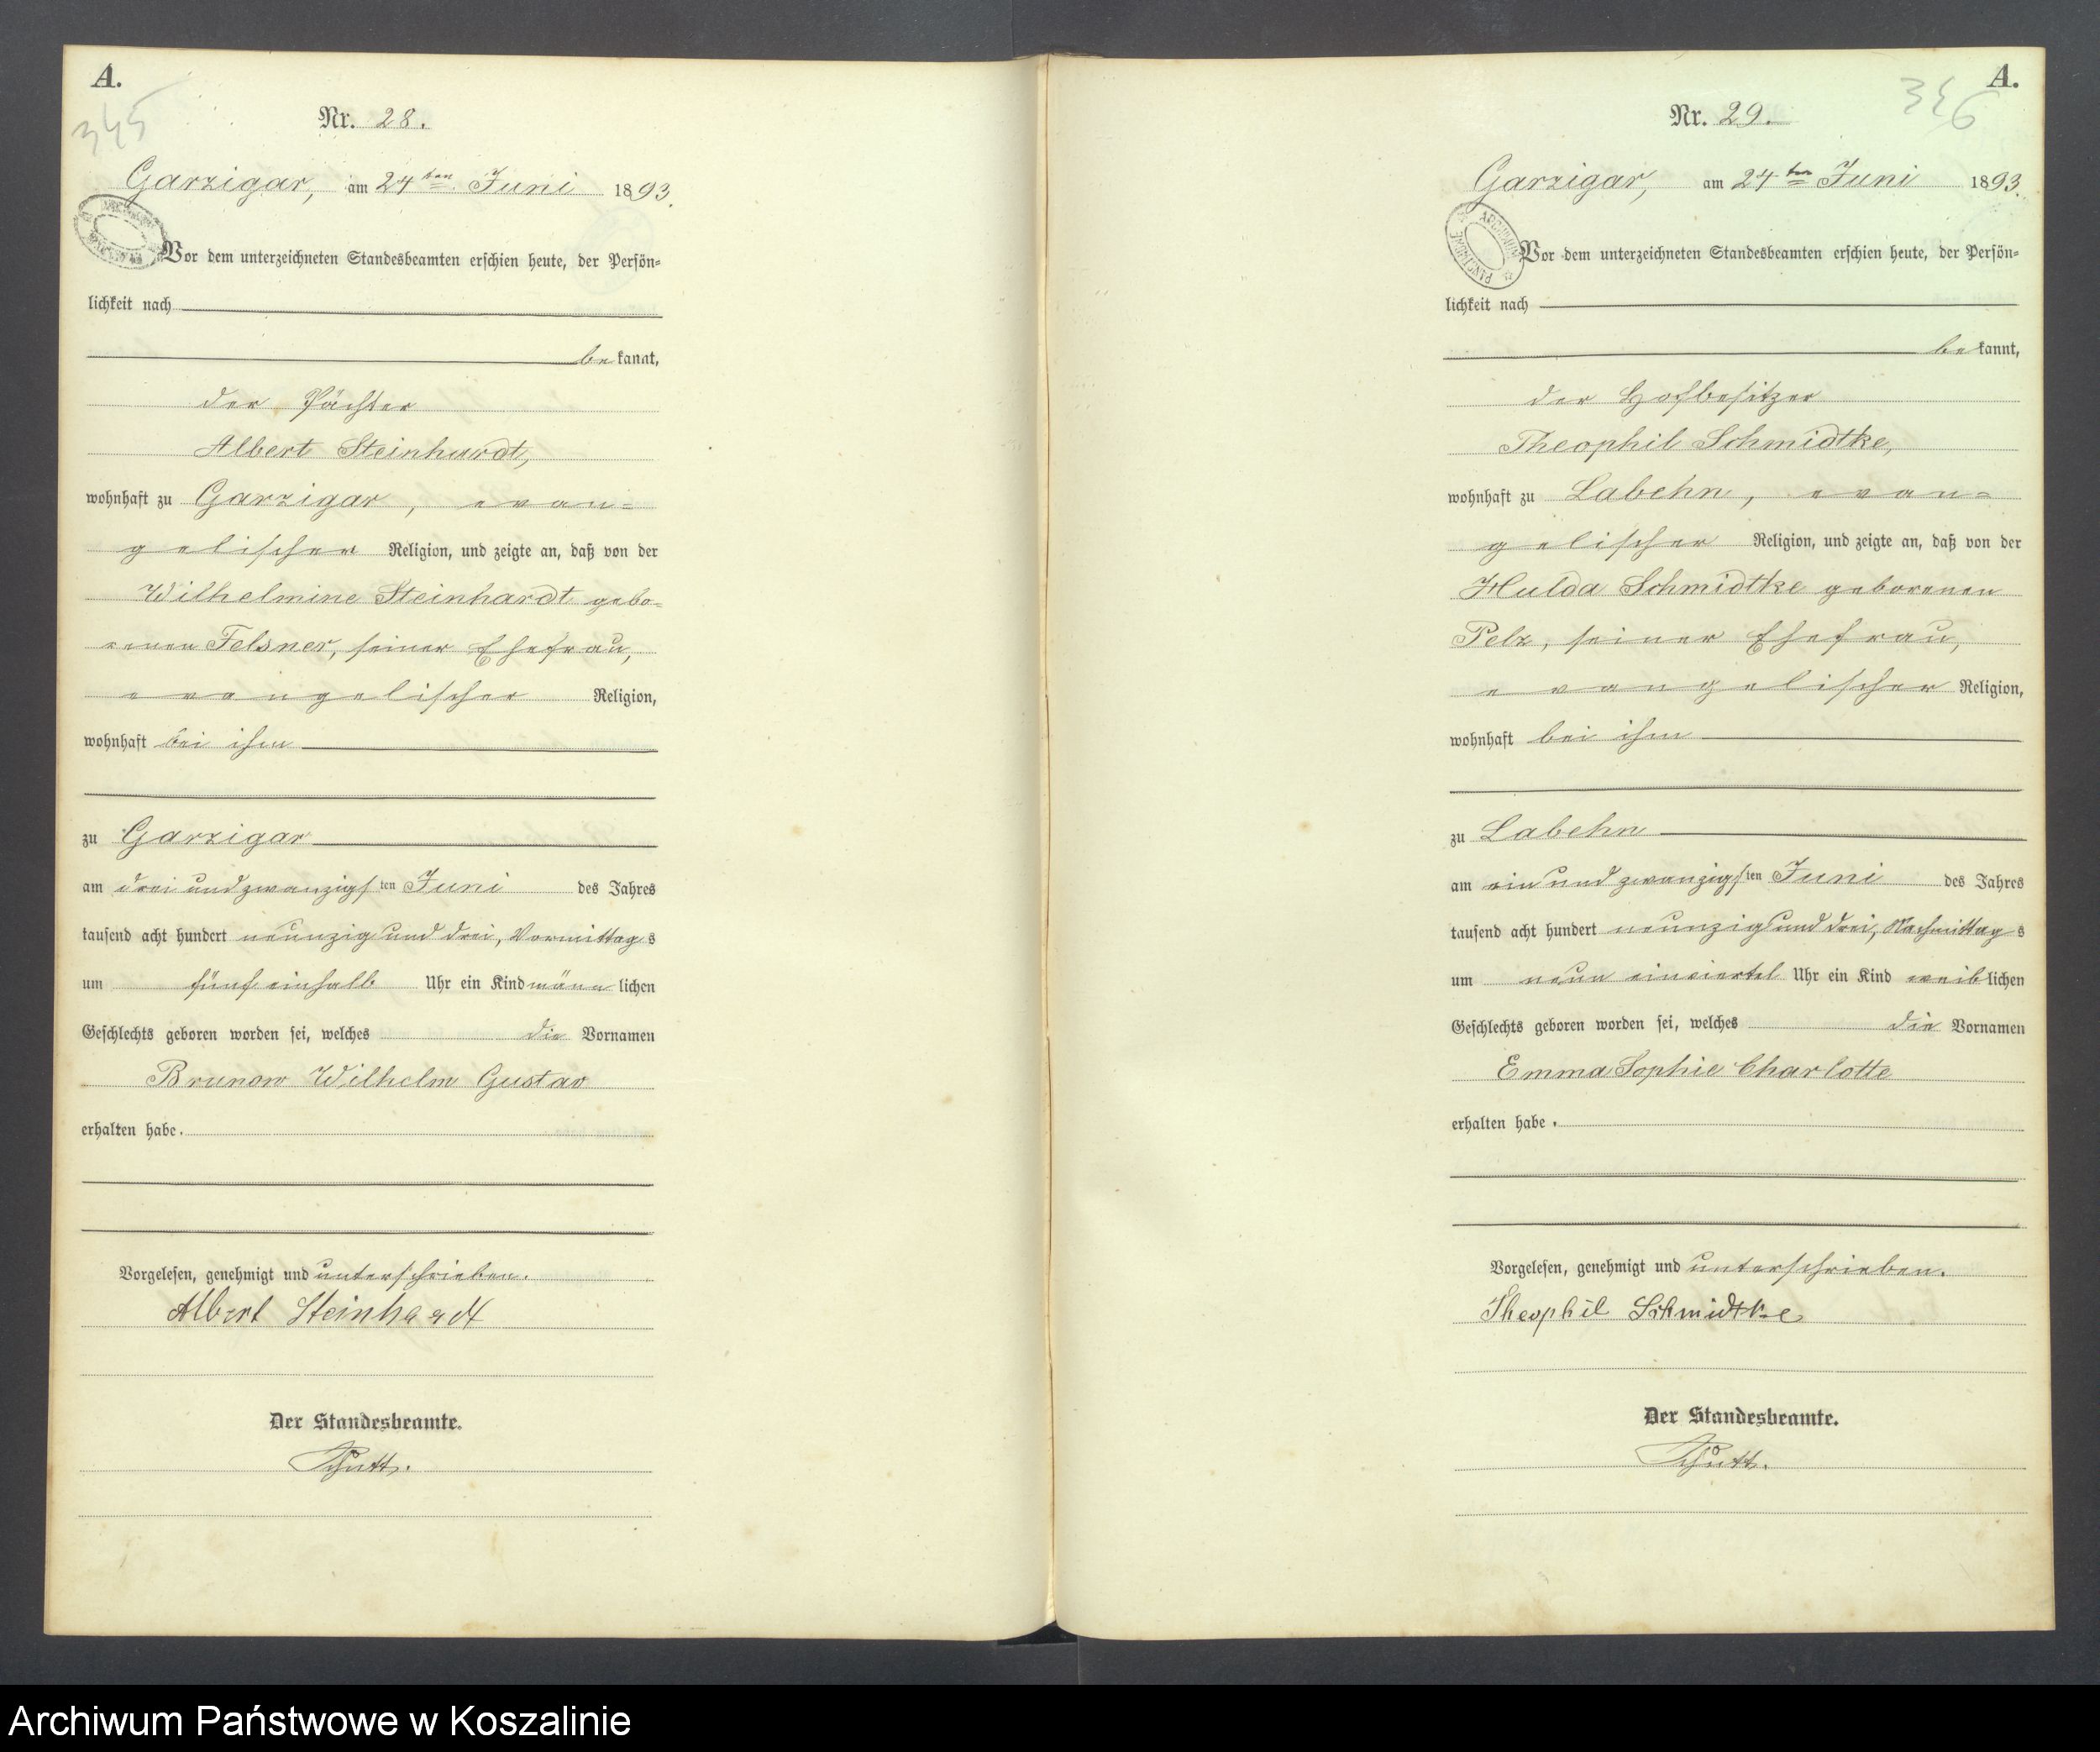 A.
345
Nr. 28.
Garzigar, am 24ten Juni 1893.
Vor dem unterzeichneten Standesbeamten erschien heute, der Persön-
lichkeit nach
bekannt,
der Pächter
Albert Steinhardt,
wohnhaft zu Garzigar, evan=
gelischer Religion, und zeigte an, daß von der
Wilhelmine Steinhardt gebo-
renen Felsner, seiner Ehefrau,
evangelischer Religion,
wohnhaft bei ihm
zu Garzigar
am drei und zwanzigsten Juni des Jahres
tausend acht hundert neunzig und drei, Vormittags
um fünf einhalb Uhr ein Kind männlichen
Geschlechts geboren worden sei, welches die Vornamen
Brunow Wilhelm Gustav
erhalten habe.
Vorgelesen, genehmigt und unterschrieben.
Albert Steinhardt
Der Standesbeamte.
A.
346
Nr. 29.
Garzigar, am 24ten Juni 1893.
ARCHIWUM PAŃSTWOWE
Vor dem unterzeichneten Standesbeamten erschien heute, der Persön-
lichkeit nach
bekannt,
der Hofbesitzer
Theophil Schmidtke,
wohnhaft zu Labehn, evan=
gelischer Religion, und zeigte an, daß von der
Hulda Schmidtke geborenen
Pelz, seiner Ehefrau,
evangelischer Religion,
wohnhaft bei ihm
zu Labehn
am ein und zwanzigsten Juni des Jahres
tausend acht hundert neunzig und drei, Nachmittags
um neun einviertel Uhr ein Kind weiblichen
Geschlechts geboren worden sei, welches die Vornamen
Emma Sophie Charlotte
erhalten habe.
Vorgelesen, genehmigt und unterschrieben.
Theophil Schmidtke
Der Standesbeamte.
Archiwum Państwowe w Koszalinie